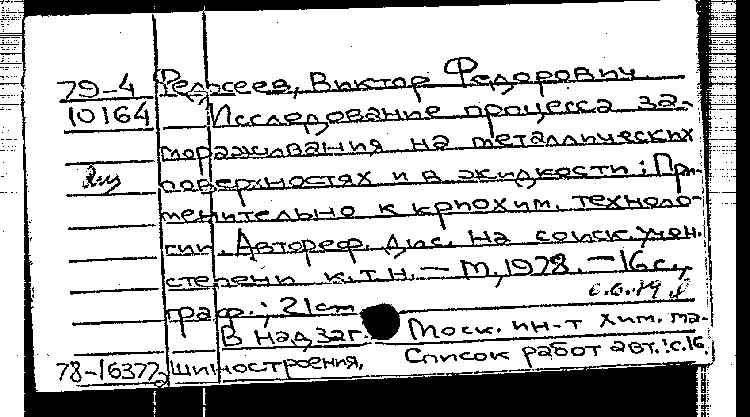 79-4 Редкеев, Виктор Федорович.
10164 Исследование процесса за-
мораживания на металлических
поверхностях и в жидкости: При-
менительно к криохим. техноло-
гии. Автореф. дис. на соиск. учен.
степени к.т.н. — М, 1978. — 16 с.,
граф.; 21 см
В надзаг.: Моск. ин-т хим. ма-
78-16377 шиностроения. Список работ авт.: с. 16.